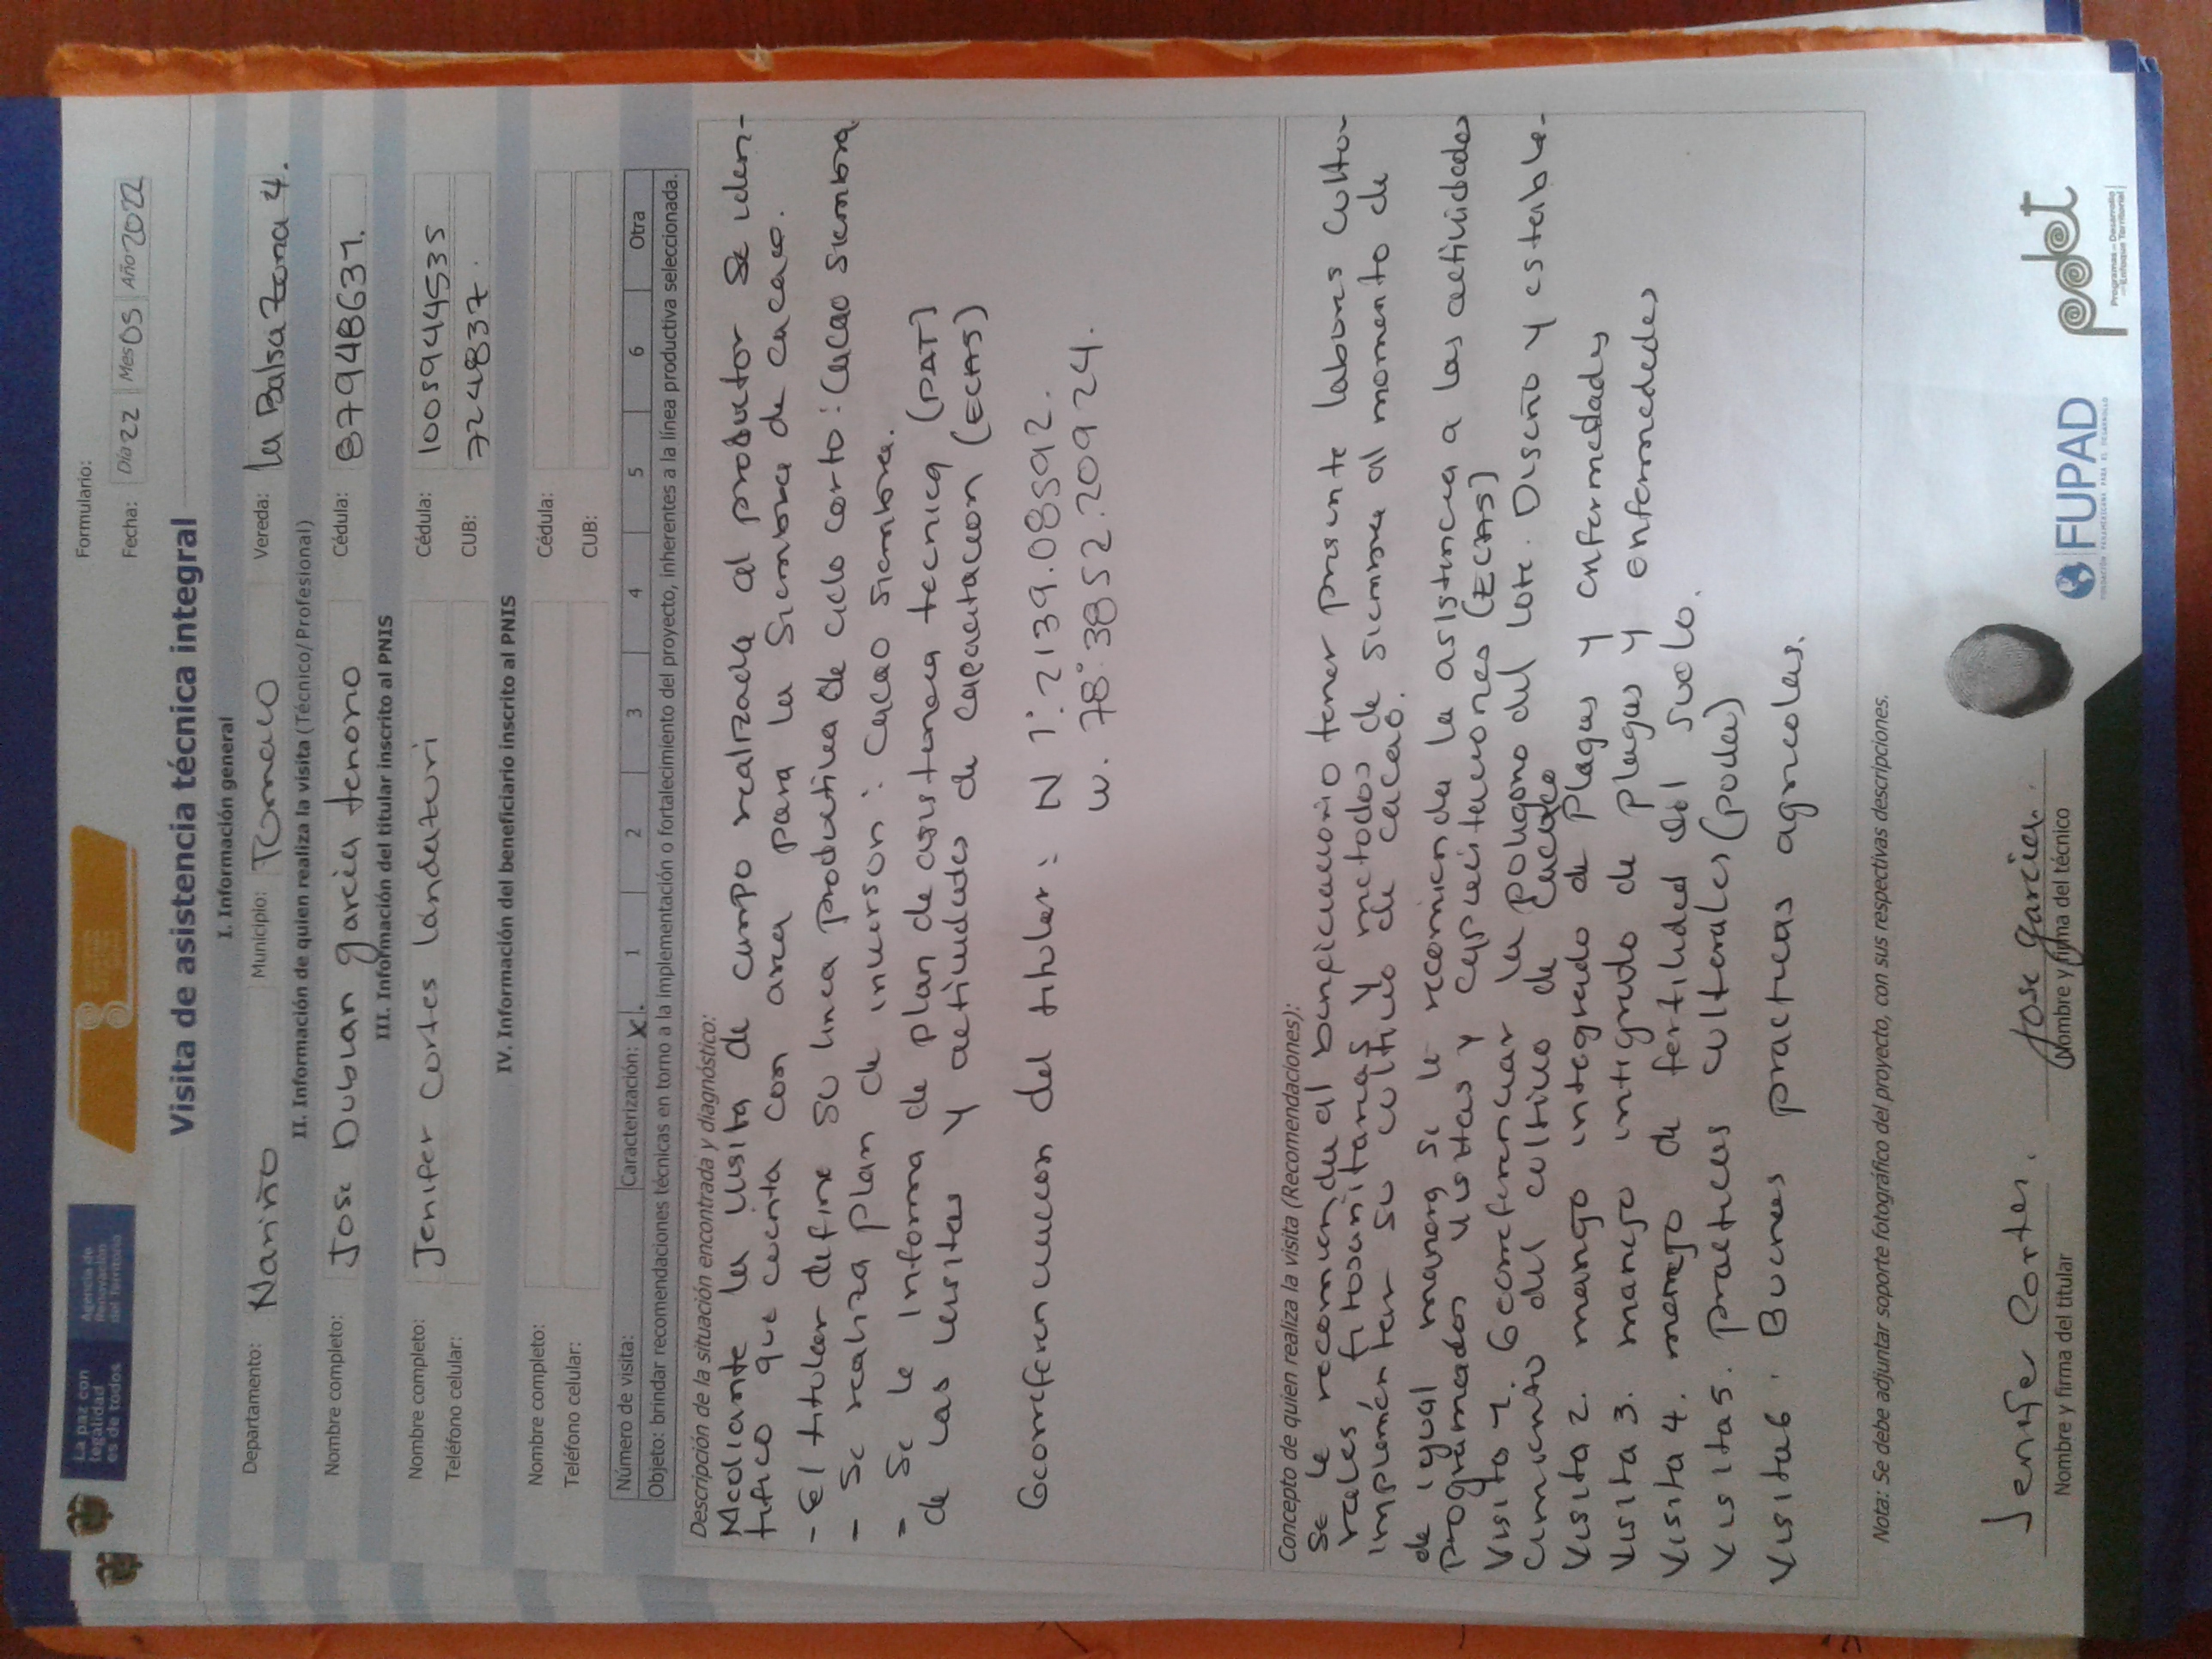 La paz con legalidad es de todos
Agencia de Renovación del Territorio
Formulario:
Fecha: Día 22 Mes 05 Año 2022
Visita de asistencia técnica integral
I. Información general
Departamento: Nariño Municipio: Tumaco Vereda: la Balsa Zona 4.
II. Información de quien realiza la visita (Técnico/Profesional)
Nombre completo: Jose Dubian garcia tenorio Cédula: 87948631.
III. Información del titular inscrito al PNIS
Nombre completo: Jenifer Cortes landazuri Cédula: 1005944535
Teléfono celular: CUB: 724837.
IV. Información del beneficiario inscrito al PNIS
Nombre completo: Cédula:
Teléfono celular: CUB:
Número de visita: Caracterización: X. 1 2 3 4 5 6 Otra
Objeto: brindar recomendaciones técnicas en torno a la implementación o fortalecimiento del proyecto, inherentes a la línea productiva seleccionada.
Descripción de la situación encontrada y diagnóstico:
Mediante la visita de campo realizada al productor se iden-
tifico que cuenta con area para la siembra de cacao.
- El titular define su linea productiva de ciclo corto: Cacao siembra
- Se realiza plan de inversion: Cacao siembra.
- Se le informa de plan de asistencia tecnica (PAT)
de las visitas y actividades de capacitacion (ECAS)
Georeferenciacion del titular: N 1°. 2139.08592.
W. 78°. 3852.20924.
Concepto de quien realiza la visita (Recomendaciones):
Se le recomienda al beneficiario tener presente labores cultu-
rales, fitosanitarias y metodos de siembra al momento de
implementar su cultivo de cacao.
de igual manera se le recomienda la asistencia a las actividades
programadas visitas y capacitaciones (ECAS)
Visita 1. Georeferenciar la poligono del lote. Diseño y estable-
cimiento del cultivo de cacao
Visita 2. manejo integrado de Plagas y enfermedades
Visita 3. manejo integrado de plagas y enfermedades
Visita 4. manejo de fertilidad del suelo.
Visita 5. Practicas culturales (poda)
Visita 6. Buenas practicas agricolas.
Nota: Se debe adjuntar soporte fotográfico del proyecto, con sus respectivas descripciones.
Jenifer Cortes. Jose garcia.
Nombre y firma del titular Nombre y firma del técnico
FUPAD
FUNDACIÓN PANAMERICANA PARA EL DESARROLLO
pdet
Programas de Desarrollo con Enfoque Territorial